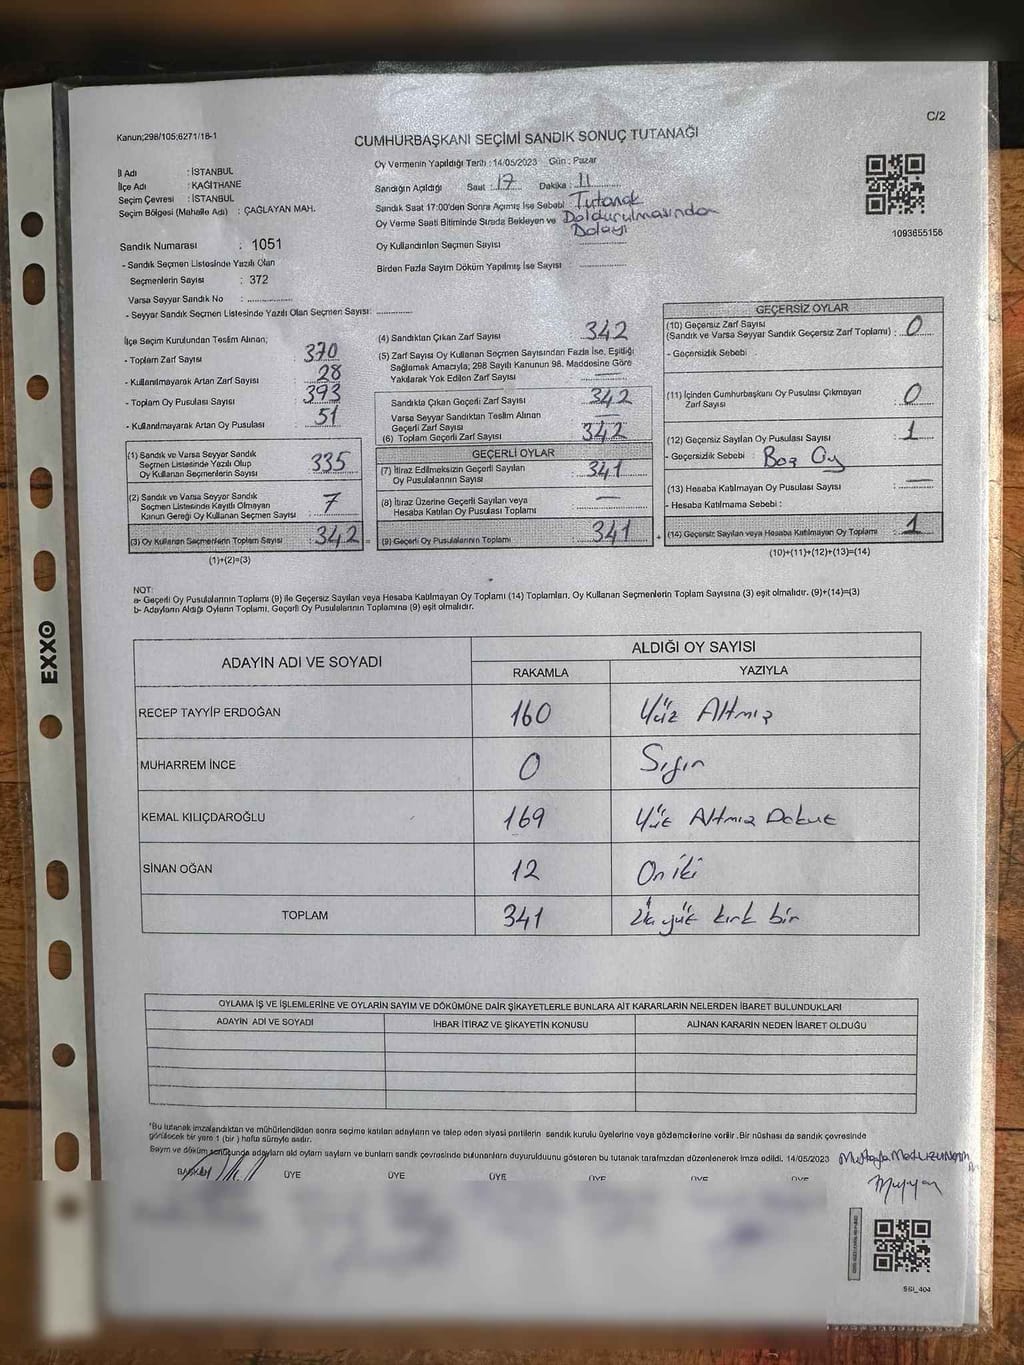 C/2
Kanun;298/105;6271/18-1
CUMHURBAŞKANI SEÇİMİ SANDIK SONUÇ TUTANAĞI
İl Adı : İSTANBUL
İlçe Adı : KAĞITHANE
Seçim Çevresi : İSTANBUL
Seçim Bölgesi (Mahalle Adı) : ÇAĞLAYAN MAH.
Sandık Numarası : 1051
- Sandık Seçmen Listesinde Yazılı Olan
Seçmenlerin Sayısı : 372
Varsa Seyyar Sandık No : ..............
- Seyyar Sandık Seçmen Listesinde Yazılı Olan Seçmen Sayısı: ............
Oy Vermenin Yapıldığı Tarih : 14/05/2023 Gün : Pazar
Sandığın Açıldığı Saat : 17 Dakika : 11
Sandık Saat 17:00'den Sonra Açımış İse Sebebi : Tutanak
Oy Verme Saati Bitiminde Sırada Bekleyen ve Doldurulmasından
Dolayı
Oy Kullandırılan Seçmen Sayısı
Birden Fazla Sayım Döküm Yapılmış İse Sayısı : ..............
1093655156
İlçe Seçim Kurulundan Teslim Alınan;
- Toplam Zarf Sayısı : 370
- Kullanılmayarak Artan Zarf Sayısı : 28
- Toplam Oy Pusulası Sayısı : 393
- Kullanılmayarak Artan Oy Pusulası : 51
(1) Sandık ve Varsa Seyyar Sandık
Seçmen Listesinde Yazılı Olup
Oy Kullanan Seçmenlerin Sayısı : 335
(2) Sandık ve Varsa Seyyar Sandık
Seçmen Listesinde Kayıtlı Olmayan
Kanun Gereği Oy Kullanan Seçmen Sayısı : 7
(3) Oy Kullanan Seçmenlerin Toplam Sayısı : 342 =
(1)+(2)=(3)
(4) Sandıktan Çıkan Zarf Sayısı : 342
(5) Zarf Sayısı Oy Kullanan Seçmen Sayısından Fazla İse, Eşitliği
Sağlamak Amacıyla; 298 Sayılı Kanunun 98. Maddesine Göre
Yakılarak Yok Edilen Zarf Sayısı : —
Sandıkta Çıkan Geçerli Zarf Sayısı : 342
Varsa Seyyar Sandıktan Teslim Alınan
Geçerli Zarf Sayısı : —
(6) Toplam Geçerli Zarf Sayısı : 342
GEÇERLİ OYLAR
(7) İtiraz Edilmeksizin Geçerli Sayılan
Oy Pusulalarının Sayısı : 341
(8) İtiraz Üzerine Geçerli Sayılan veya
Hesaba Katılan Oy Pusulası Toplamı : —
(9) Geçerli Oy Pusulalarının Toplamı : 341 +
GEÇERSİZ OYLAR
(10) Geçersiz Zarf Sayısı
(Sandık ve Varsa Seyyar Sandık Geçersiz Zarf Toplamı) : 0
- Geçersizlik Sebebi
(11) İçinden Cumhurbaşkanı Oy Pusulası Çıkmayan
Zarf Sayısı : 0
(12) Geçersiz Sayılan Oy Pusulası Sayısı : 1
- Geçersizlik Sebebi : Boş Oy
(13) Hesaba Katılmayan Oy Pusulası Sayısı : —
- Hesaba Katılmama Sebebi :
(14) Geçersiz Sayılan veya Hesaba Katılmayan Oy Toplamı : 1
(10)+(11)+(12)+(13)=(14)
NOT:
a- Geçerli Oy Pusulalarının Toplamı (9) ile Geçersiz Sayılan veya Hesaba Katılmayan Oy Toplamı (14) Toplamları, Oy Kullanan Seçmenlerin Toplam Sayısına (3) eşit olmalıdır. (9)+(14)=(3)
b- Adayların Aldığı Oyların Toplamı, Geçerli Oy Pusulalarının Toplamına (9) eşit olmalıdır.
ADAYIN ADI VE SOYADI ALDIĞI OY SAYISI
RAKAMLA YAZIYLA
RECEP TAYYİP ERDOĞAN 160 Yüz Altmış
MUHARREM İNCE 0 Sıfır
KEMAL KILIÇDAROĞLU 169 Yüz Altmış Dokuz
SİNAN OĞAN 12 On iki
TOPLAM 341 Üç yüz kırk bir
OYLAMA İŞ VE İŞLEMLERİNE VE OYLARIN SAYIM VE DÖKÜMÜNE DAİR ŞİKAYETLERLE BUNLARA AİT KARARLARIN NELERDEN İBARET BULUNDUKLARI
ADAYIN ADI VE SOYADI İHBAR İTİRAZ VE ŞİKAYETİN KONUSU ALINAN KARARIN NEDEN İBARET OLDUĞU
"Bu tutanak imzalandıktan ve mühürlendikten sonra seçime katılan adayların ve talep eden siyasi partilerin sandık kurulu üyelerine veya gözlemcilerine verilir .Bir nüshası da sandık çevresinde
görülecek bir yere 1 (bir ) hafta süreyle asılır.
Sayım ve döküm sonucunda adayların aldı oyların sayıları ve bunların sandık çevresinde bulunanlara duyurulduunu gösteren bu tutanak tarafımızdan düzenlenerek imza edildi. 14/05/2023 Mustafa
BAŞKAN ÜYE ÜYE ÜYE ÜYE ÜYE ÜYE
EXXO
SSI_404